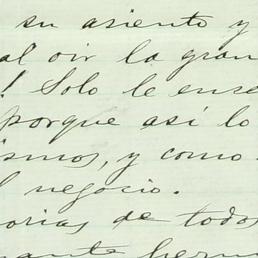 su asiento y
al oir la gran
! Solo le ense
porque así lo
ismos, y como
l negocio.
orias de todos